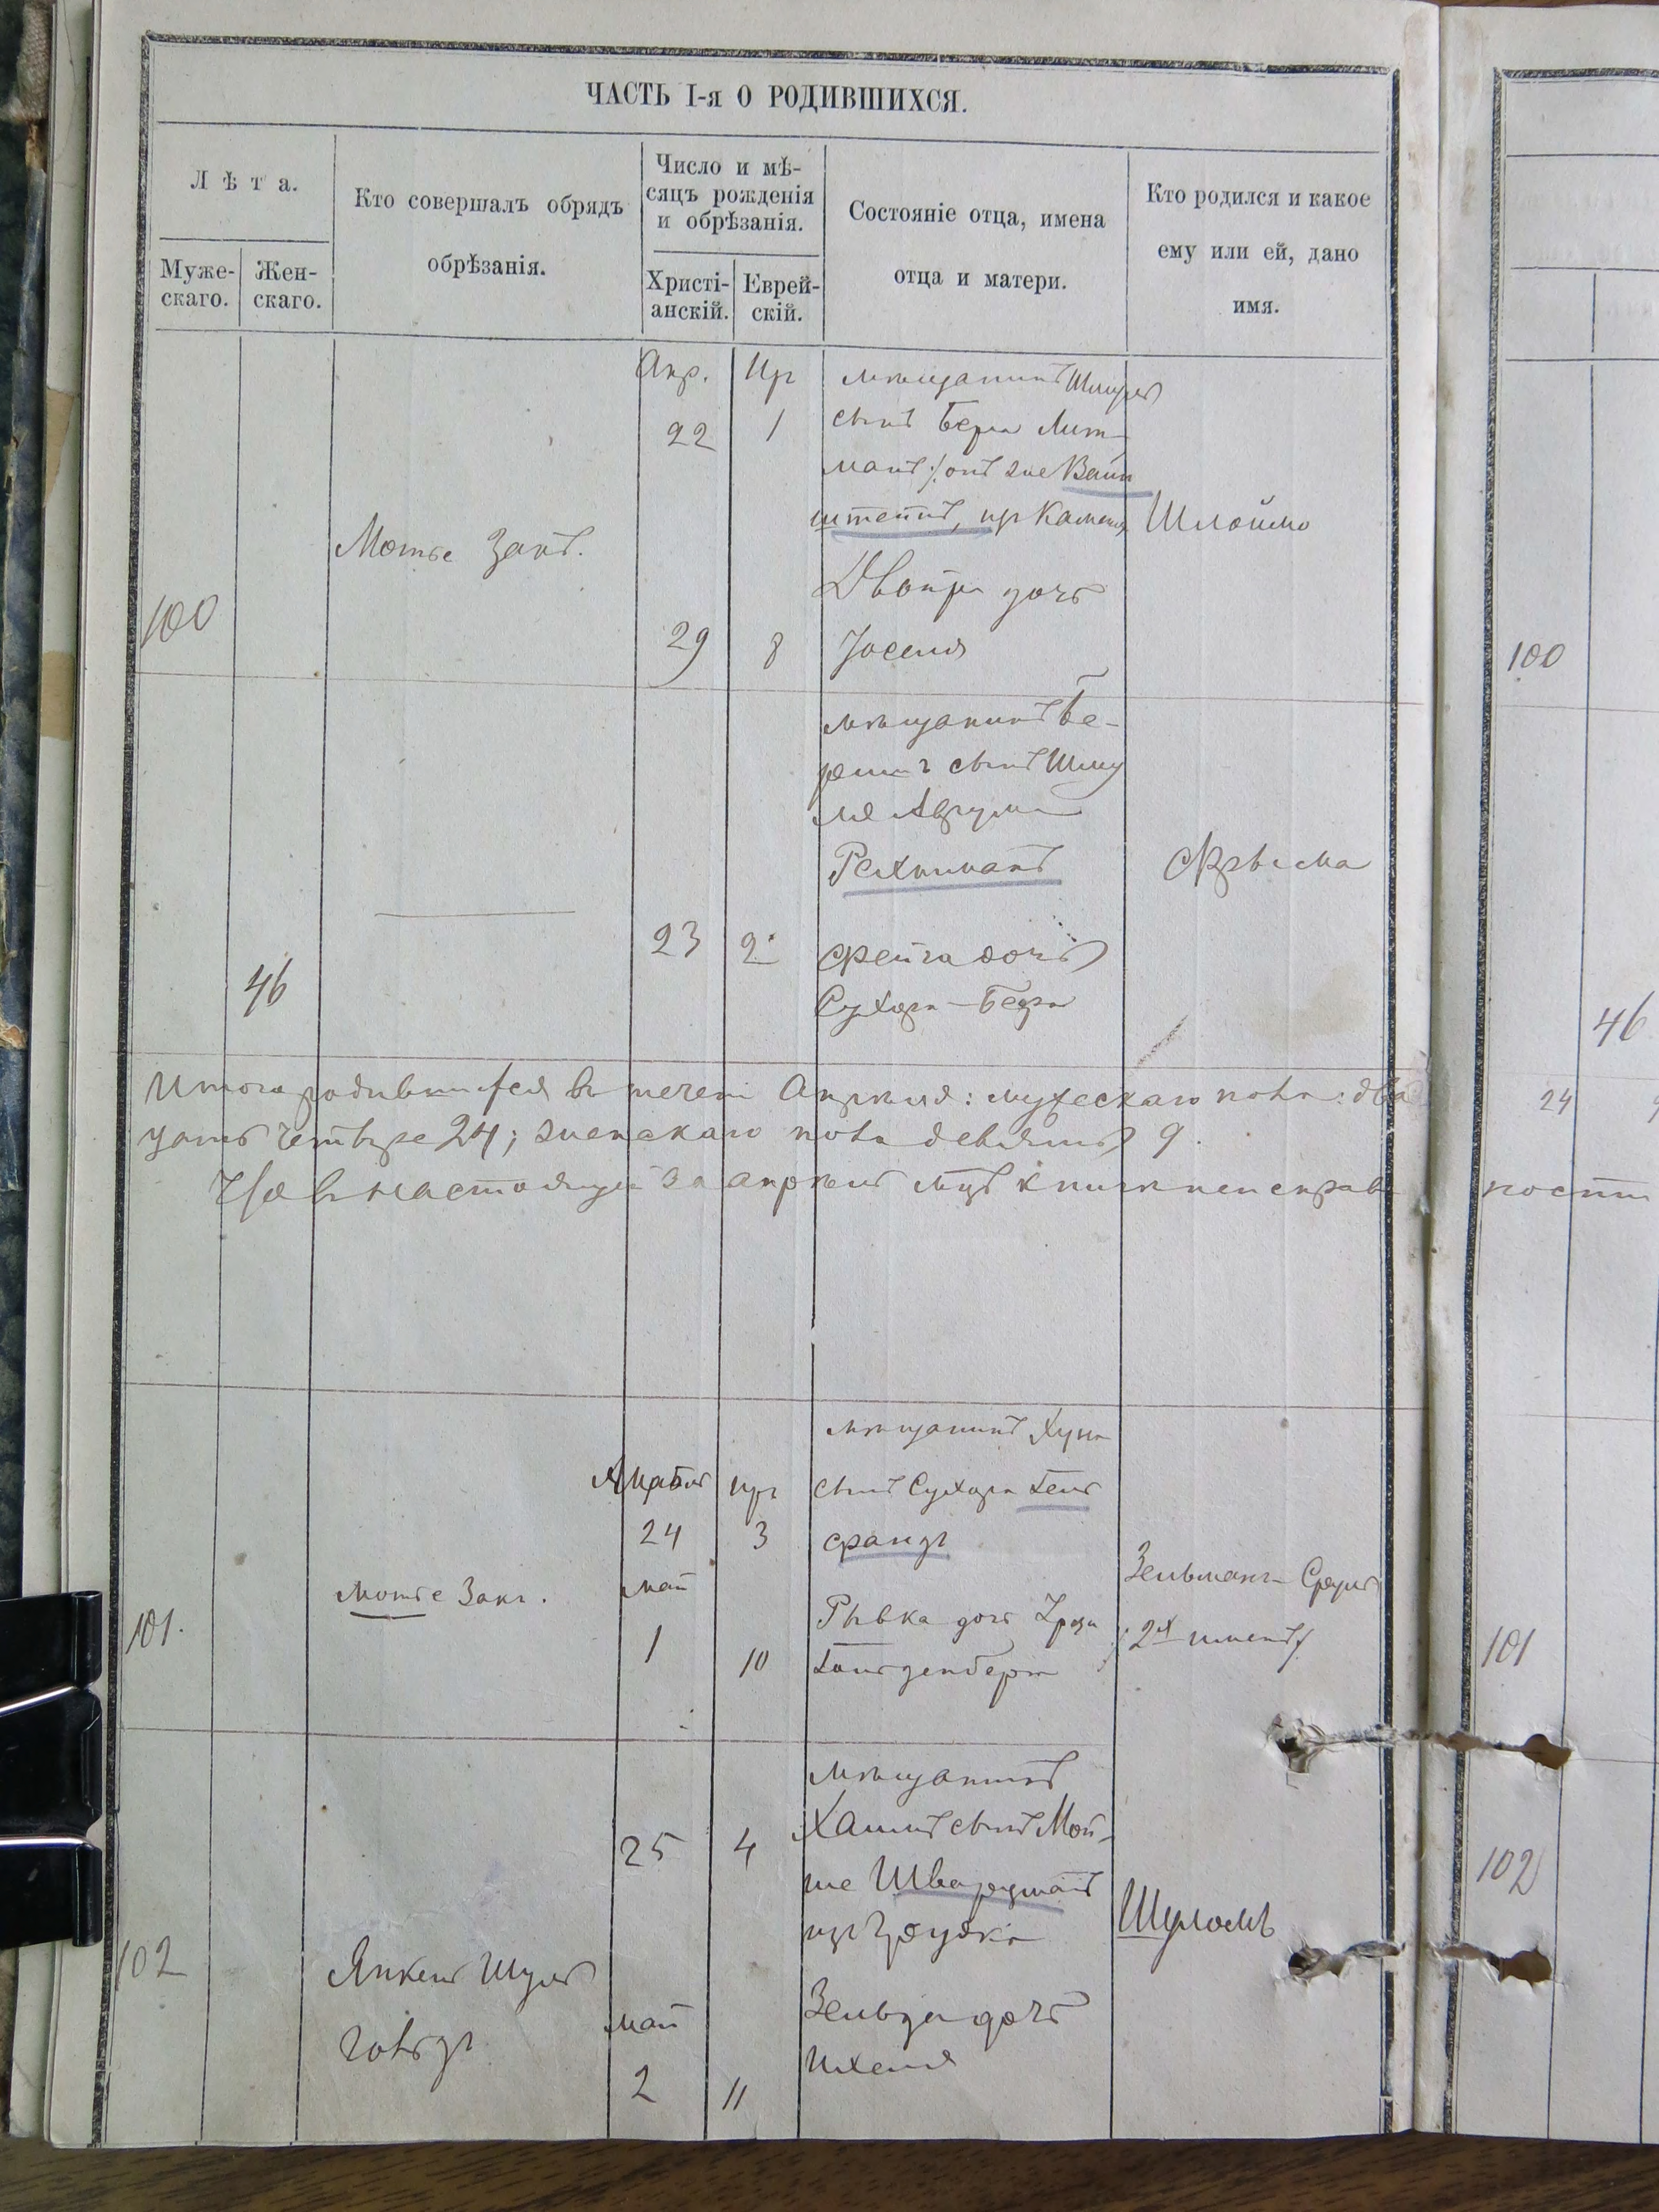 ЧАСТЬ I-я О РОДИВШИХСЯ.
Лѣта.
Муже-
скаго.
Жен-
скаго.
Кто совершалъ обрядъ
обрѣзанія.
Число и мѣ-
сяцъ рожденія
и обрѣзанія.
Христі-
анскій.
Еврей-
скій.
Состояніе отца, имена
отца и матери.
Кто родился и какое
ему или ей, дано
имя.
100
Мотье Закъ.
Апр.
22
29
Ир
1
8
мѣщанинъ Шмуль
сынъ Бера Лит
манъ /:онъ же Вайн
штейнъ, изъ
Двойра дочь
Иоселя
Шлойме
100
46
23
2
мѣщанинъ Бе-
сынъ Шму
ля
Рехтманъ
Фейга дочь
Сухера-Бера
Фрыма
46
Итого родившихся въ течені Апрѣля: мужескаго пола: два
цать четыре 24; женскаго пола девять 9.
24
Что въ настоящей за апрѣль мцъ книжкѣ неисправ
ности
101.
Мотье Закъ.
24
май
1
Иръ
3
10
мѣщанинъ Хуна
сынъ Сухера Гель
фандъ
Рывка дочь
Гольденберга
Зельманъ-Сруль
/:2хъ именъ/
101
102
Янкель Шуль
25
май
2
4
11
мѣщанинъ
Хаимъ сынъ Мой-
ше Шварцманъ
изъ
Зельда дочь
Ихеля
Шуломъ
102